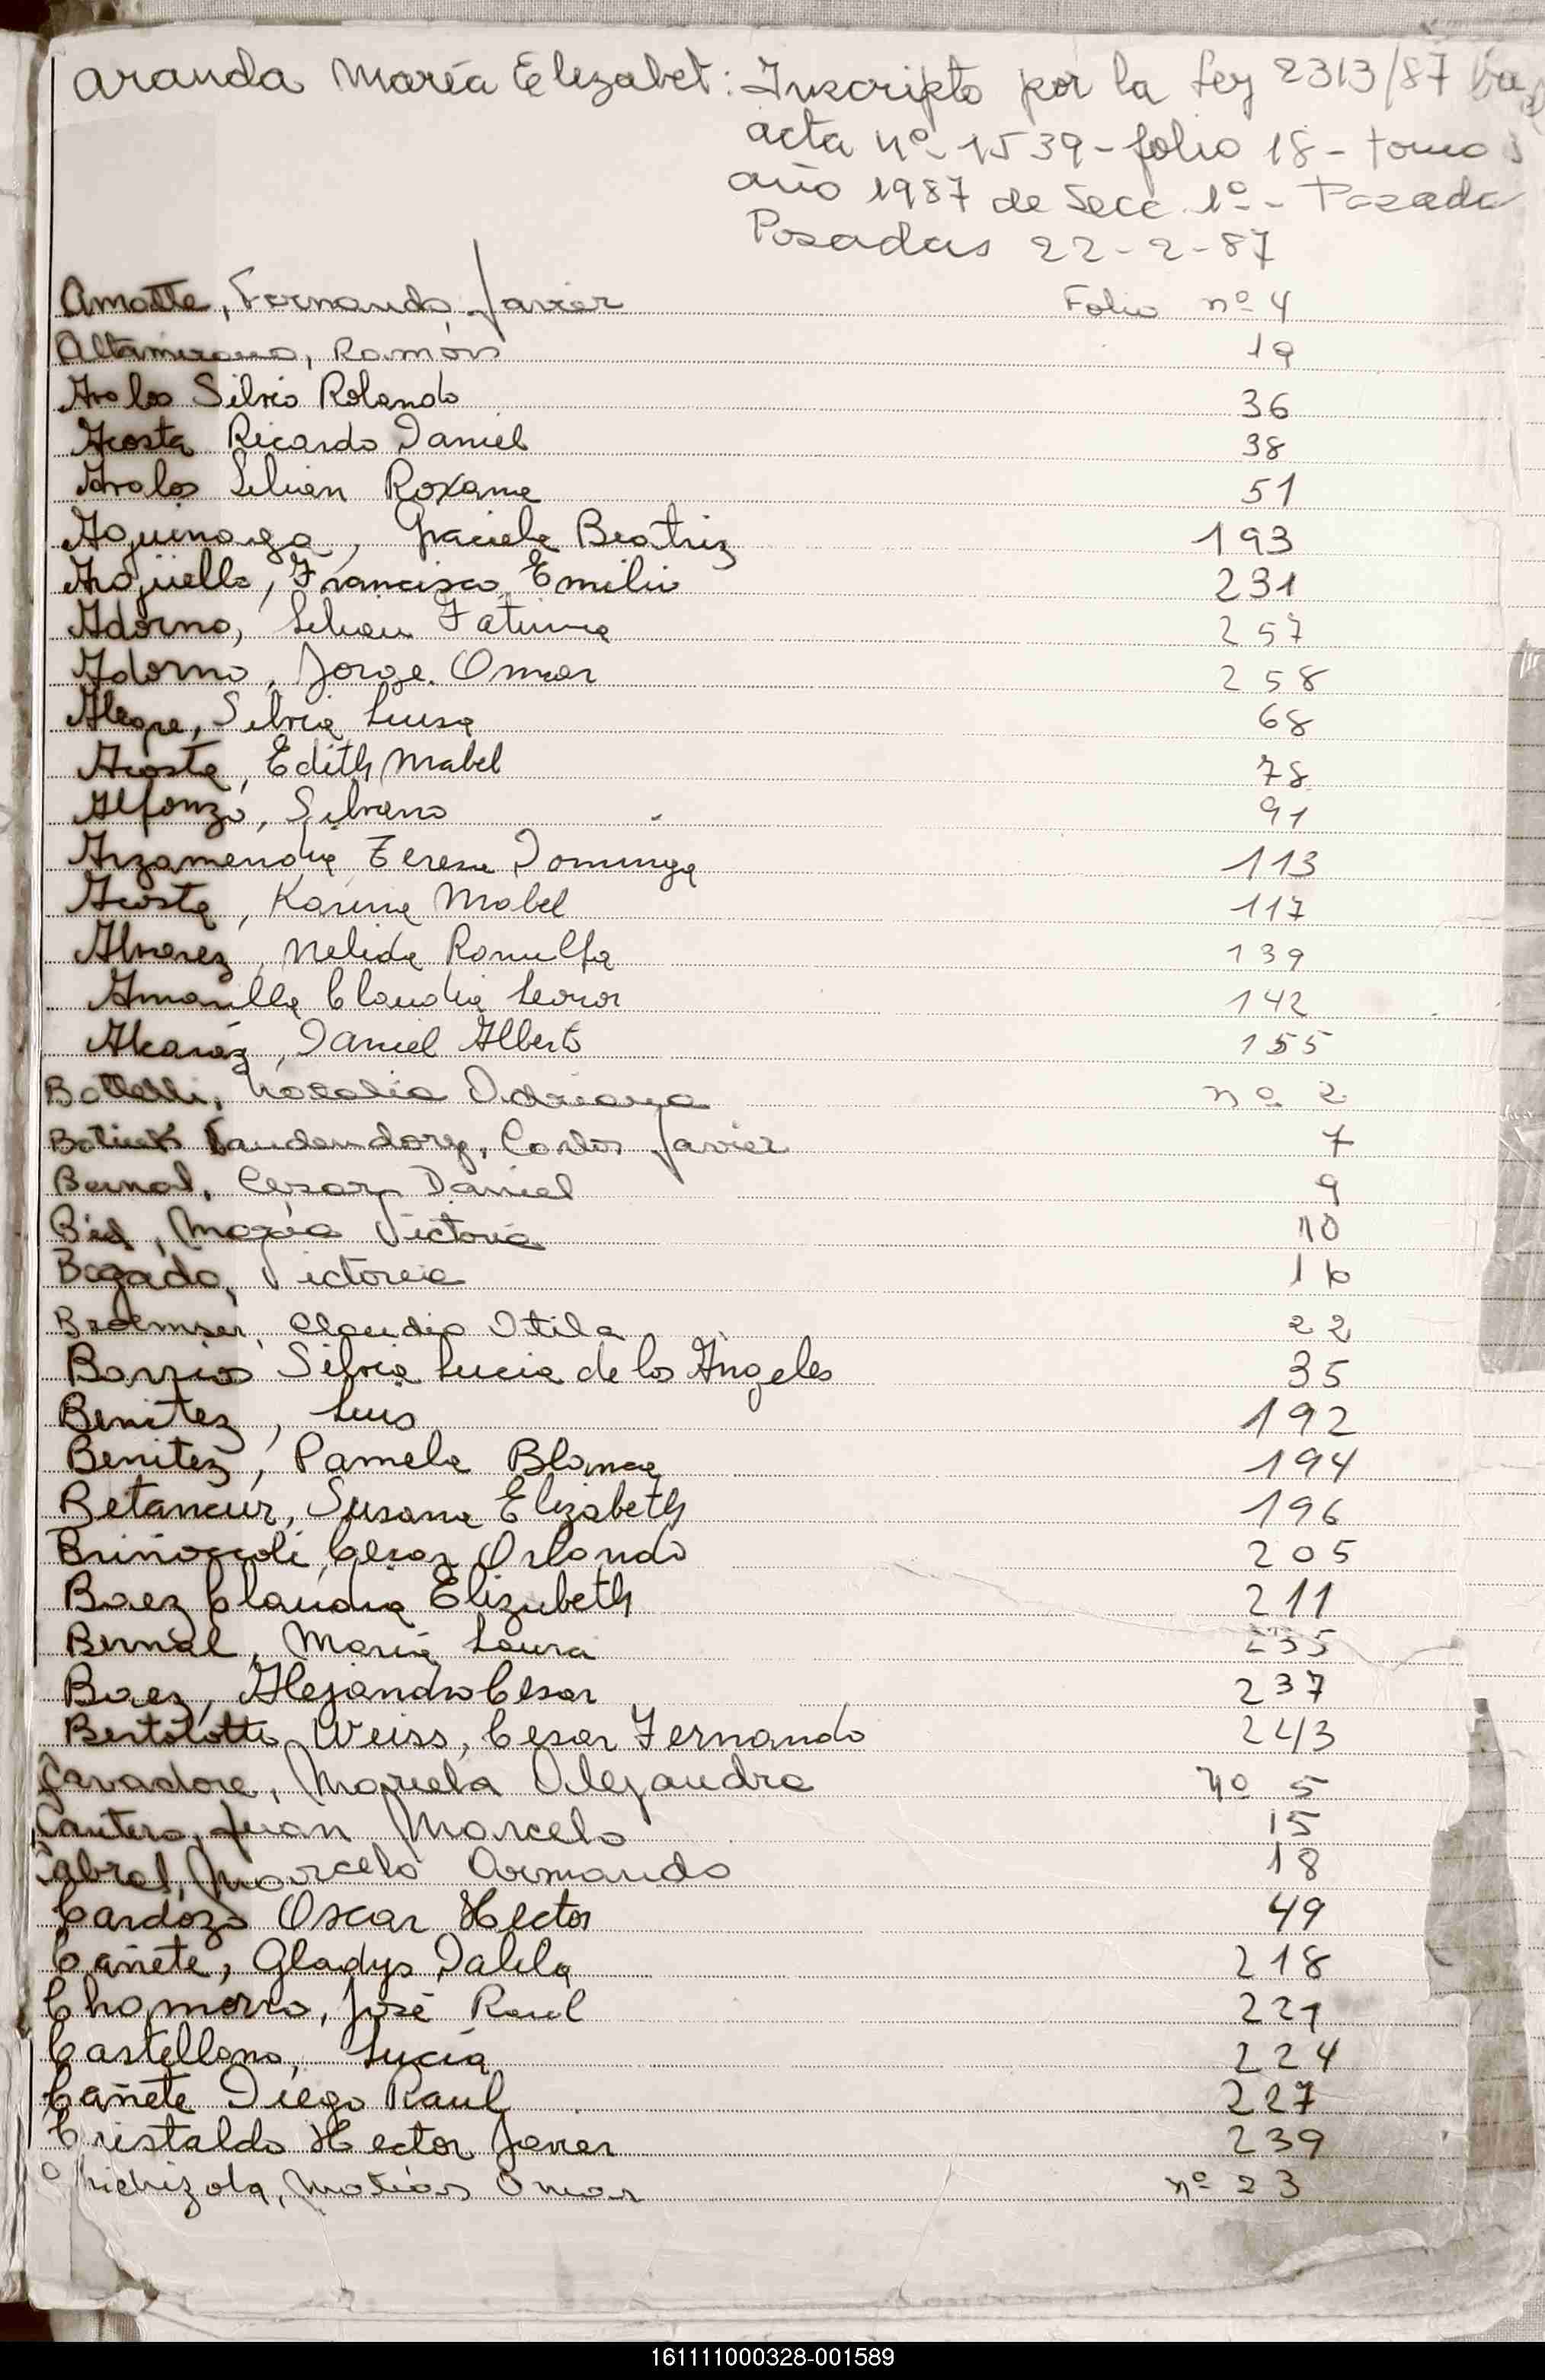 Aranda María Elizabet: Inscripto por la Ley 2313/87 bajo
acta nº 1539 - folio 18 - tomo
año 1987 de Secc. 1º - Posadas
Posadas 22-2-87
Amatte, Fernando Javier Folio nº 4
Altamirano, Ramón 19
Avalos Silvio Rolando 36
Acosta Ricardo Daniel 38
Avalos Lilian Roxana 51
Aguinaga, Graciela Beatriz 193
Argüello, Francisco Emilio 231
Adorno, Lilian Fatima 257
Adorno, Jorge Omar 258
Alegre, Silvia Luisa 68
Acosta, Edith Mabel 78
Alfonzo, Silvano 91
Arzamendia, Teresa Dominga 113
Acosta, Karina Mabel 117
Alvarez, Nelida Ramulfa 139
Amarilla Claudia Leonor 142
Alcaráz, Daniel Alberto 155
Battelli, Natalia Adriana nº 2
Carlos Javier 7
Bernal, Cesar Daniel 9
María Victoria 10
Bogado, Victoria 16
Claudio Atila 22
Barrios Silvia Lucia de los Angeles 35
Benitez, Luis 192
Benitez, Pamela Blanca 194
Betancur, Susana Elizabeth 196
Briñoccoli, Cesar Orlando 205
Baez Claudia Elizabeth 211
Bernal, María Laura 235
Baez, Alejandro Cesar 237
Bertolotti Weiss, Cesar Fernando 243
Mariela Alejandra nº 5
Cantero, Juan Marcelo 15
Cabral, Marcelo Armando 18
Cardozo Oscar Hector 49
Cañete, Gladys Dalila 218
Chamorro, José Raul 221
Castellano, Lucía 224
Cañete Diego Raul 227
Cristaldo Hector Javier 239
Chichizola, Matías Omar nº 23
161111000328-001589